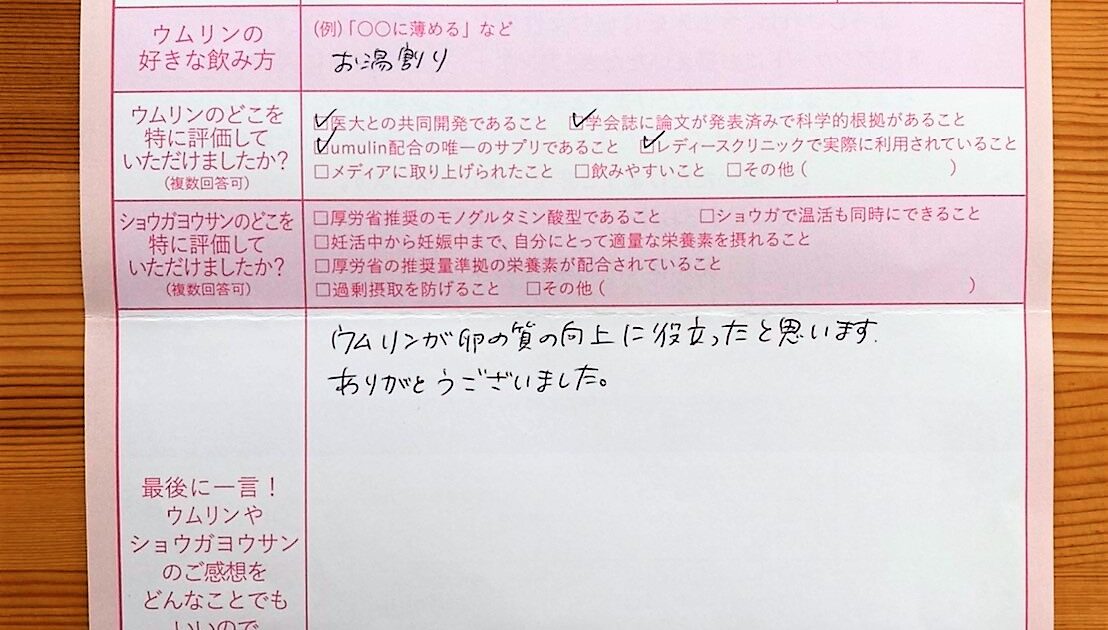 ウムリンの
好きな飲み方
(例)「〇〇に薄める」など
お湯割り
ウムリンのどこを
特に評価して
いただけましたか?
(複数回答可)
☑医大との共同開発であること ☑学会誌に論文が発表済みで科学的根拠があること
☑umulin配合の唯一のサプリであること ☑レディースクリニックで実際に利用されていること
□メディアに取り上げられたこと □飲みやすいこと □その他( )
ショウガヨウサンのどこを
特に評価して
いただけましたか?
(複数回答可)
□厚労省推奨のモノグルタミン酸型であること □ショウガで温活も同時にできること
□妊活中から妊娠中まで、自分にとって適量な栄養素を摂れること
□厚労省の推奨量準拠の栄養素が配合されていること
□過剰摂取を防げること □その他( )
最後に一言!
ウムリンや
ショウガヨウサン
のご感想を
どんなことでも
いいので
ウムリンが卵の質の向上に役立ったと思います.
ありがとうございました。